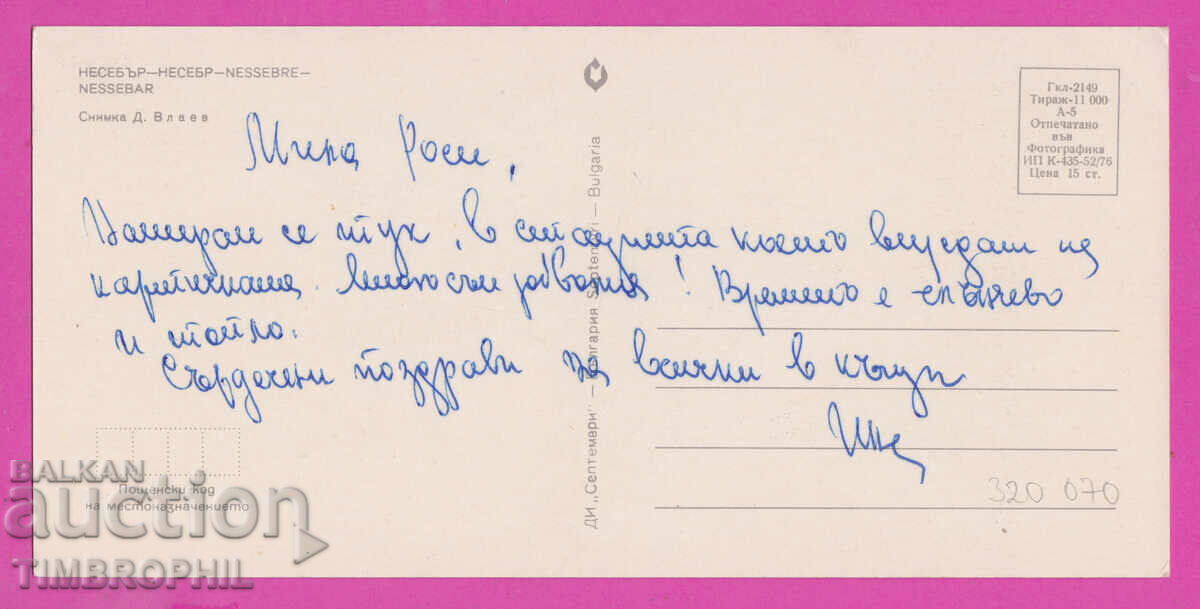 НЕСЕБЪР—НЕСЕБР—NESSEBRE—
NESSEBAR
Снимка Д. Влаев
Мила Роси,
Намирам се тук, в която виждаш на
картичката. Много съм доволна! Времето е слънчево
и топло.
Сърдечени поздрави за всички в къщи
ДИ „Септември" — България Septemvri — Bulgaria
Гкл-2149
Тираж-11 000
А-5
Отпечатано
във
Фотографика
ИП К-435-52/76
Цена 15 ст.
Пощенски код
на местоназначението
320 070
BALKAN
auction
TIMBROPHIL